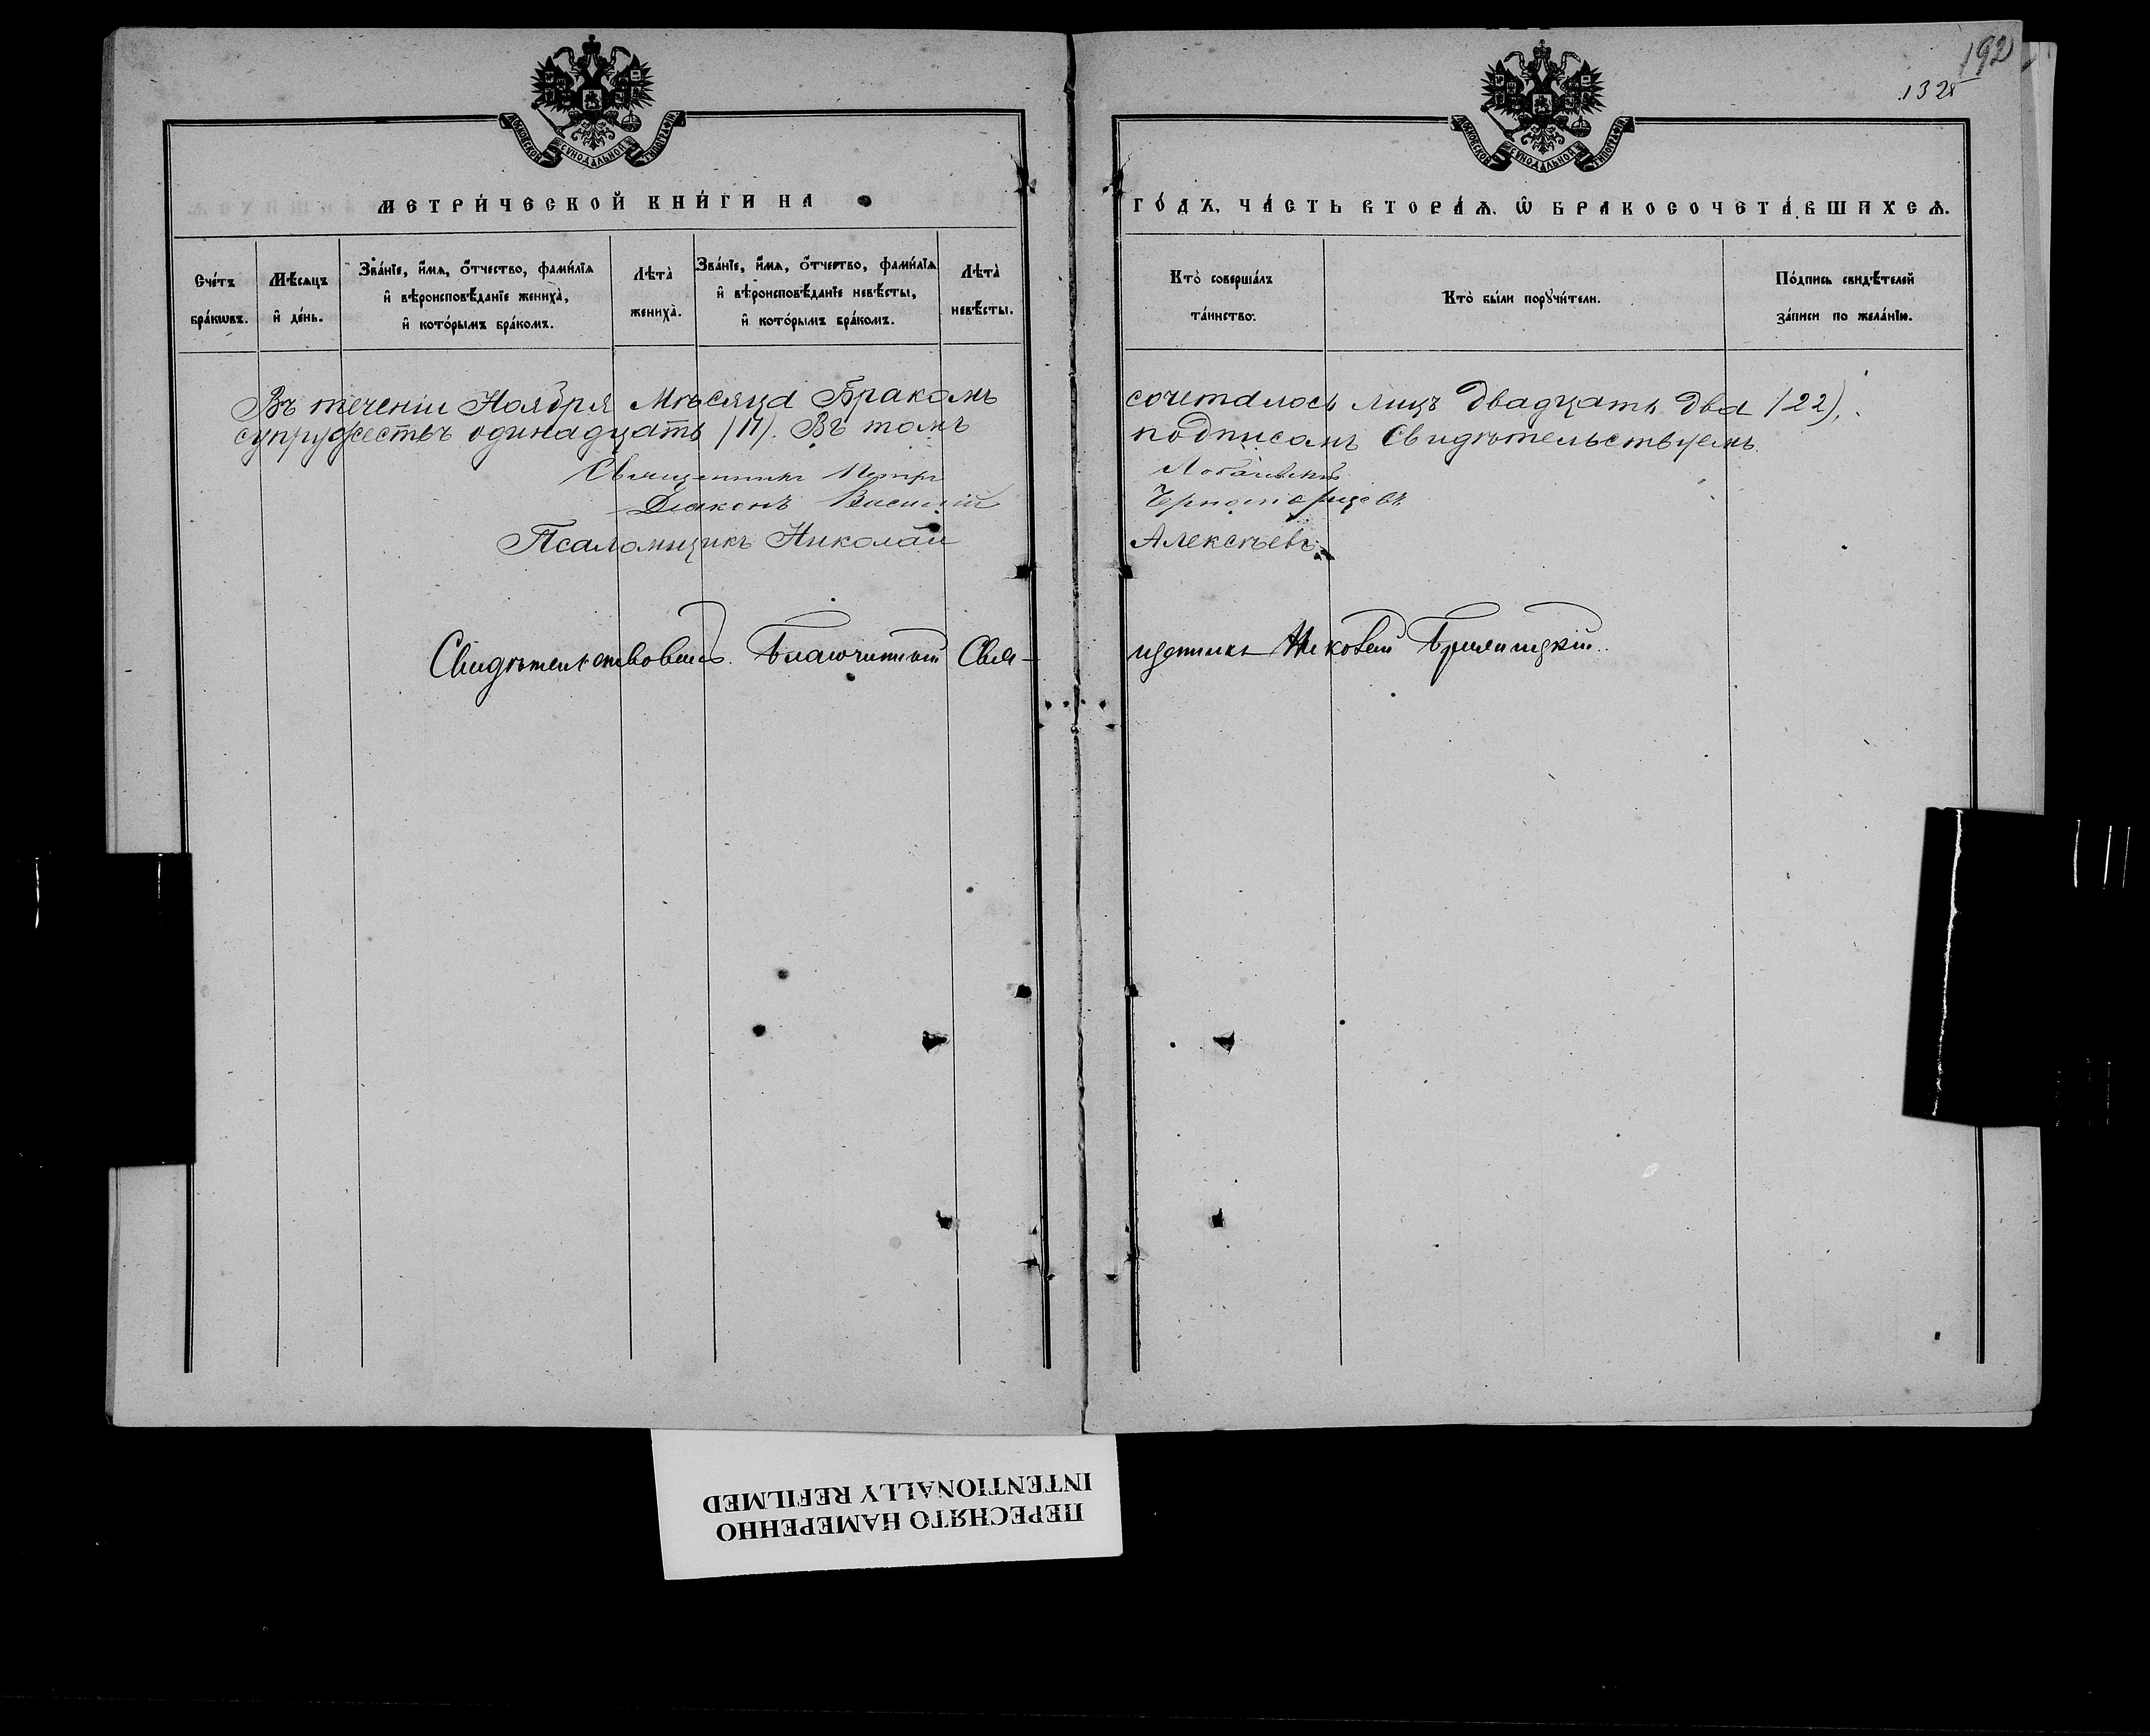 192
132
МОСКОВСКОЙ СѴНОДАЛЬНОЙ ТИПОГРАФІИ
МОСКОВСКОЙ СѴНОДАЛЬНОЙ ТИПОГРАФІИ
МЕТРИ́ЧЕСКОЙ КНИ́ГИ НА
ГО́ДЪ, ЧА́СТЬ ВТОРА́Ѧ, Ѡ҆ БРАКОСОЧЕТА́ВШИХСѦ.
Сче́тъ
бра́кѡвъ.
Мѣ́сѧцъ
и҆ де́нь.
Зва́нїе, и҆́мѧ, ѻ҆́тчество, фами́лїѧ
и҆ вѣроисповѣ́данїе жениха̀,
и҆ кото́рымъ бра́комъ.
Лѣта̀
жениха̀.
Зва́нїе, и҆́мѧ, ѻ҆́тчество, фами́лїѧ
и҆ вѣроисповѣ́данїе невѣ́сты,
и҆ кото́рымъ бра́комъ.
Лѣта̀
невѣ́сты.
Кто̀ соверша́лъ
та́инство.
Кто̀ бы́ли порꙋчи́тели.
По́дпись свидѣ́телей
за́писи по жела́нїю.
Въ теченіи Ноября Мѣсяца Бракомъ сочеталось лицъ двадцать два (22),
супружествъ одинадцать (11). Въ томъ подписомъ Свидѣтельствуемъ.
Священникъ Петръ
Діаконъ Василій Черноморцевъ
Псаломщикъ Николай Алексѣевъ
Свидѣтельствовалъ Благочинный Свя-
щенникъ
ПЕРЕСНЯТО НАМЕРЕННО
INTENTIONALLY REFILMED